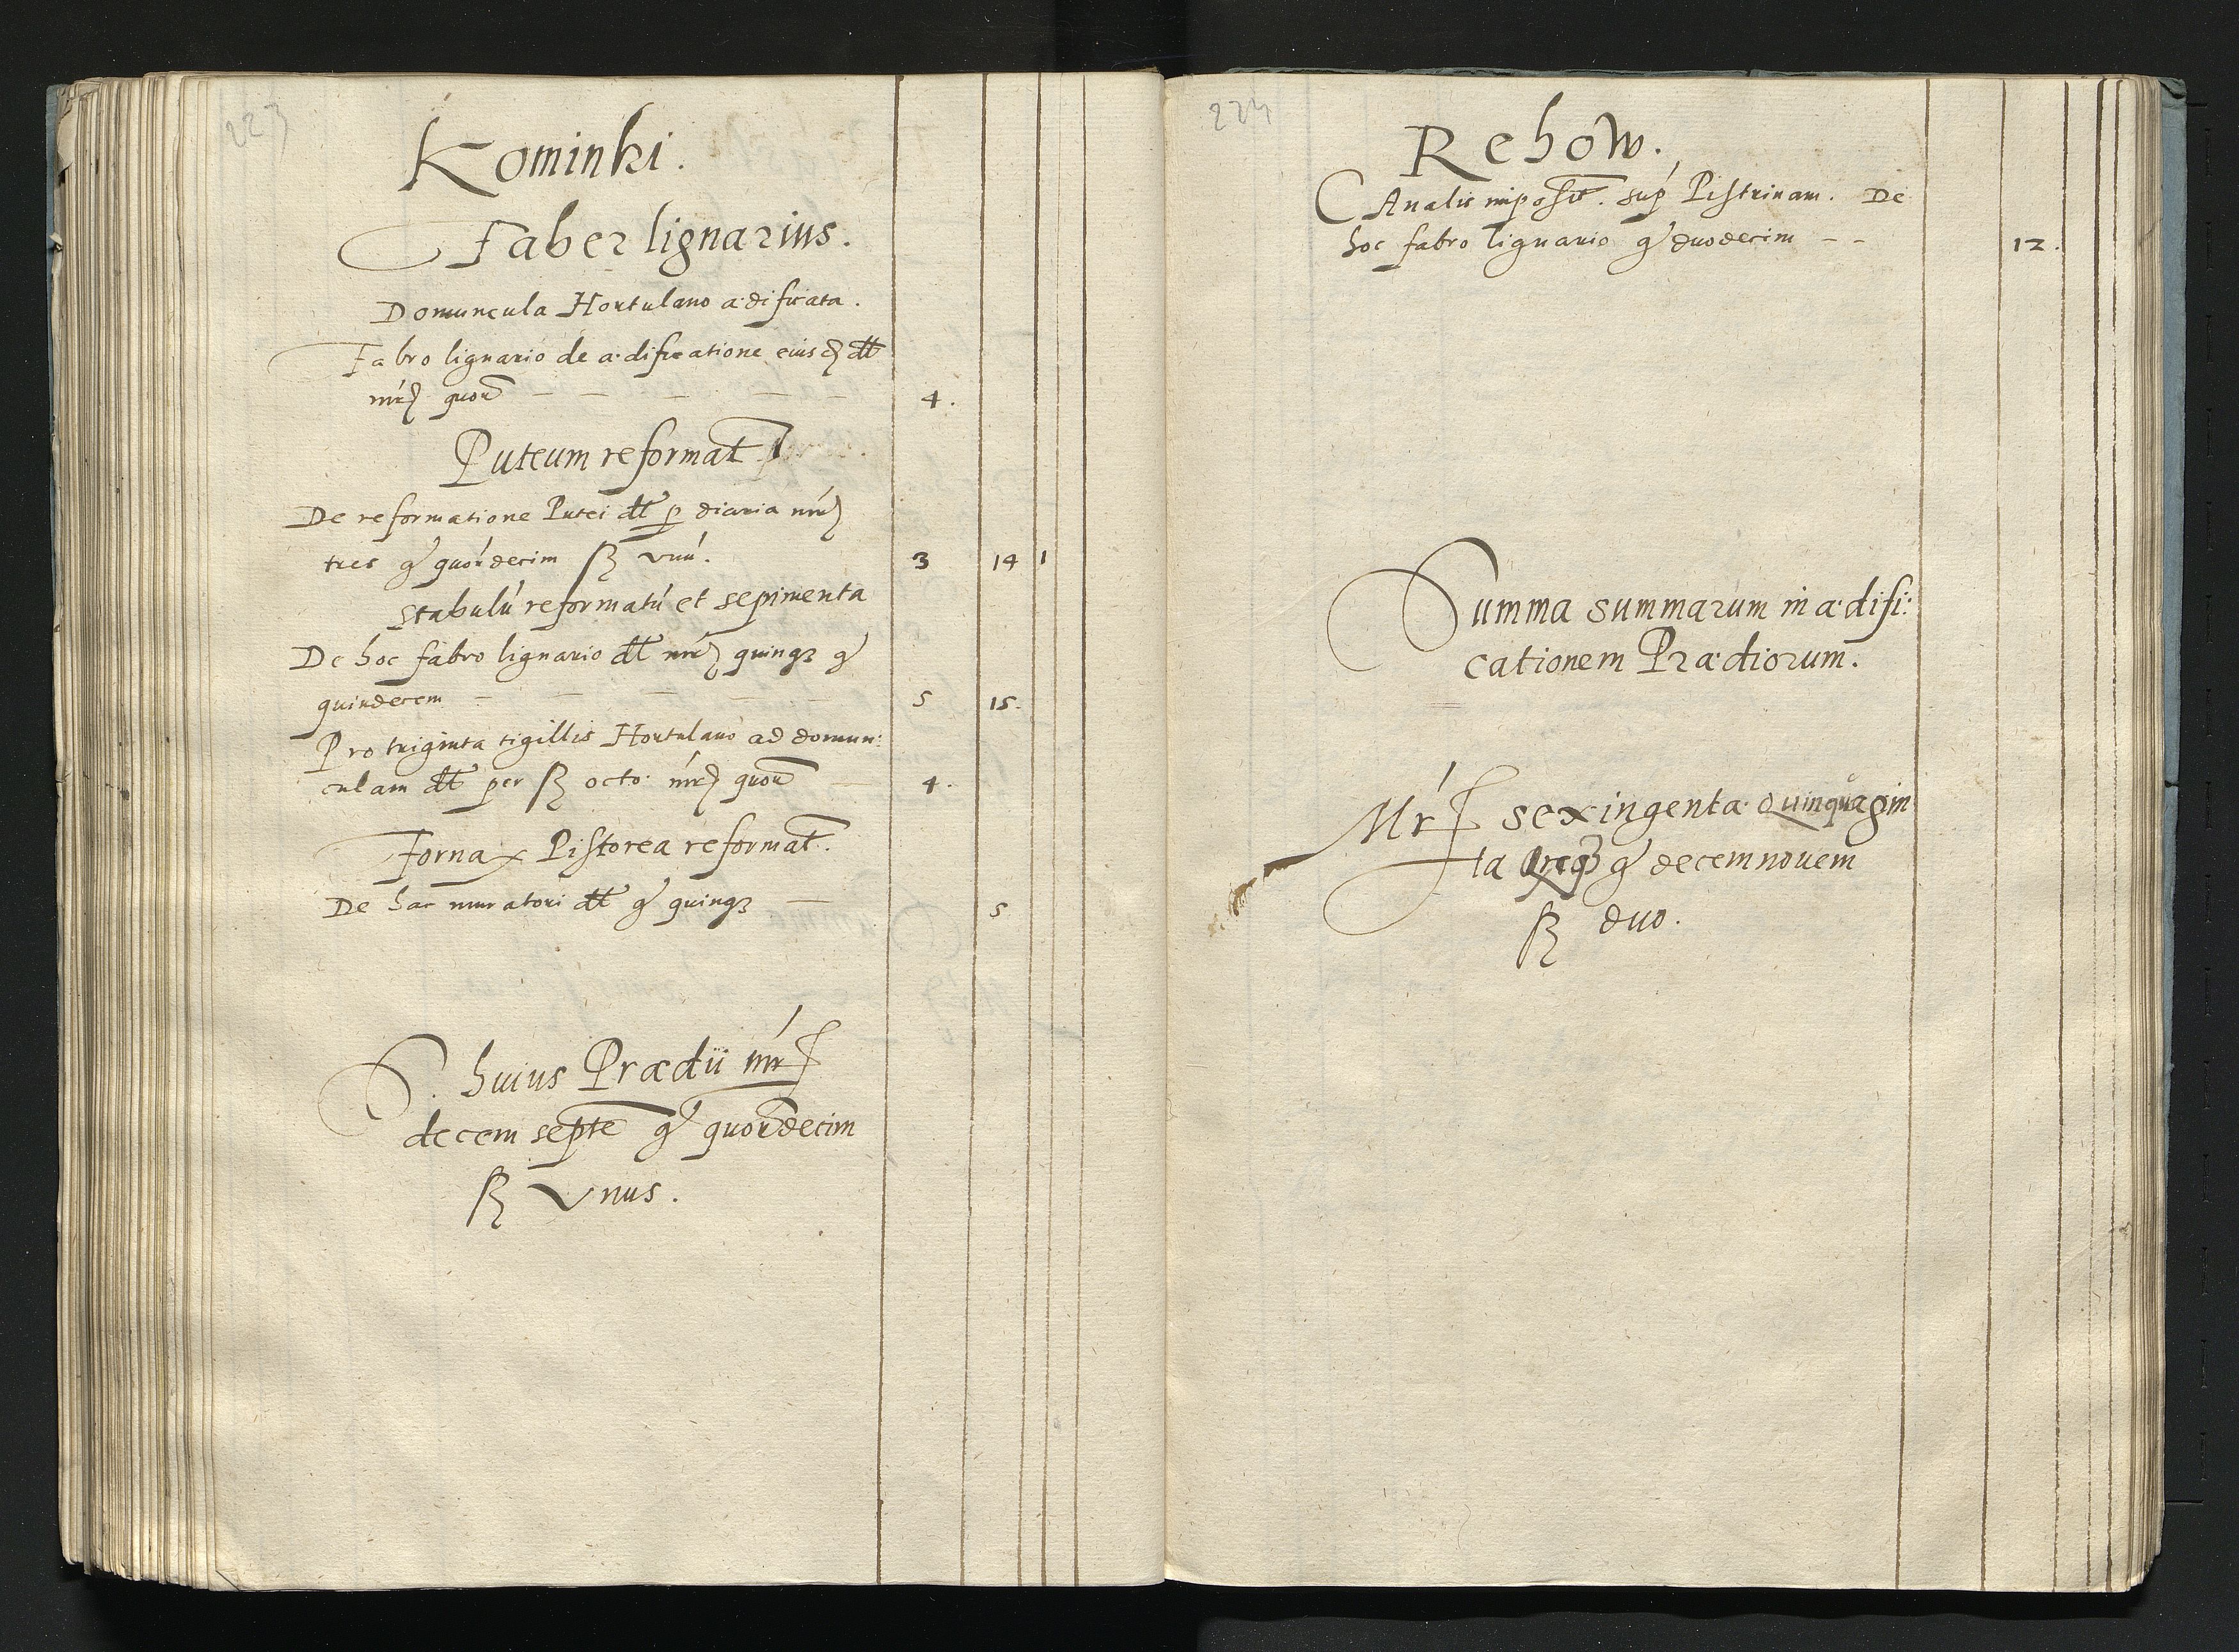 223
Kominki.
Faber lignarius.
Domuncula Hortulano ædificata.
Fabro lignario de ædificatione eiusd dt
mr quor 4.
Puteum reformat
De reformatione Putei dt p diaria mr
tres g quordecim ß vnu. 3 14 1
Stabulu reformatu et sepimenta
De hoc fabro lignario dt mr quinqz g
quindecem 5 15.
Pro triginta tigillis Hortulano ad domun:
culam dt per ß octo. mr quor 4.
Fornax Pistorea reformat.
De hac muratori dt g quinqz 5
S. huius Prædii mr
decem septe g quordecim
ß Vnus.
224
Rehow.
Canalis imposit. sup Pistrinam. De
hoc fabro lignario g duodecim - - 12.
Summa summarum in ædifi:
cationem Prædiorum.
Mr sexingenta Quinquagin
ta g decem novem
ß duo.